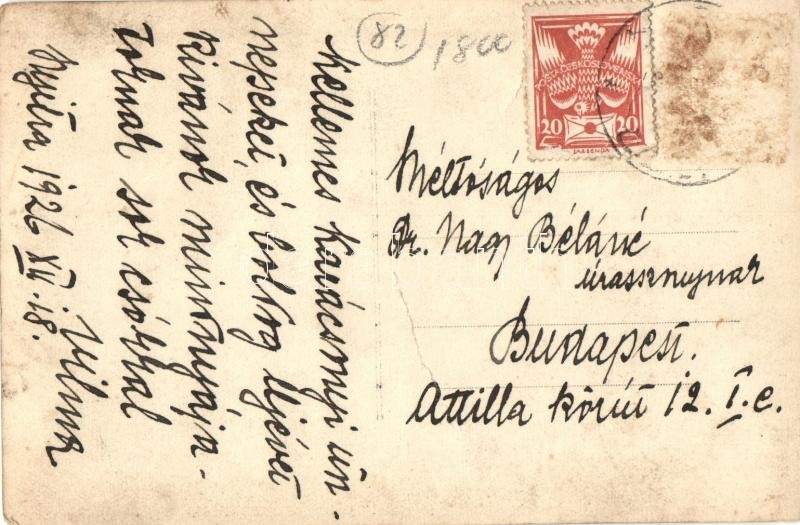 82
1800
POŠTA ČESKOSLOVENSKÁ
20 20
Kellemes Karácsonyi ün-
nepeket, és boldog Újévet
kivánok mindnyája-
toknak sok csókkal
Vilma
Nyitra 1926 XII. 18.
Méltóságos
Dr. Nagy Béláné
úrasszonynak
Budapest.
Attilla körút 12. I. e.